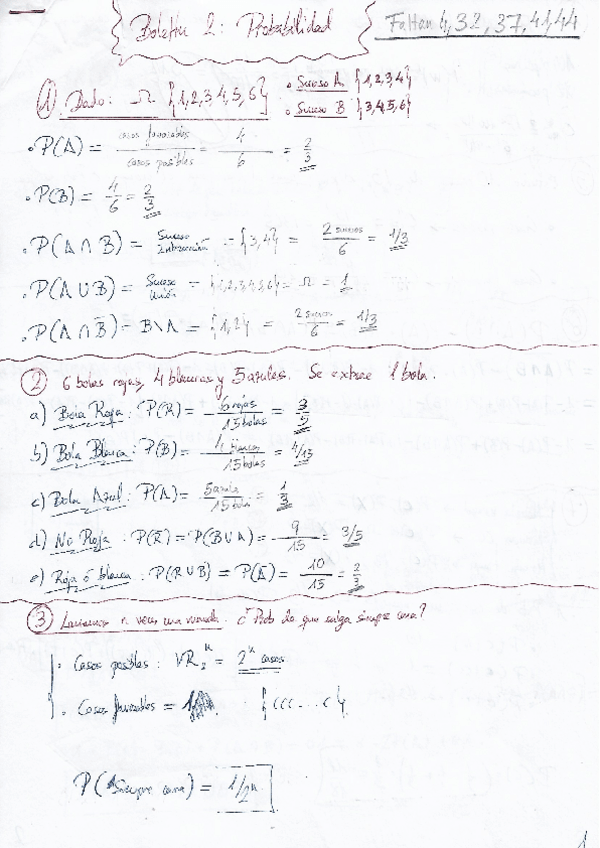 Boletín 2: Probabilidad
Faltan 4, 32, 37, 41, 44
① Dado: Ω {1,2,3,4,5,6} • Suceso A {1,2,3,4}
• Suceso B {3,4,5,6}
• P(A) = casos favorables / casos posibles = 4/6 = 2/3
• P(B) = 4/6 = 2/3
• P(A∩B) = Suceso Intersección = {3,4} = 2 sucesos/6 = 1/3
• P(A∪B) = Suceso Unión = {1,2,3,4,5,6} = Ω = 1
• P(A∩B̄) = B\A = {1,2} = 2 sucesos/6 = 1/3
② 6 bolas rojas, 4 blancas y 5 azules. Se extrae 1 bola.
a) Bola Roja: P(R) = 6 rojas/15 bolas = 3/5
b) Bola Blanca: P(B) = 4 blancas/15 bolas = 4/15
c) Bola Azul: P(A) = 5 azules/15 bolas = 1/3
d) No Roja: P(R̄) = P(B∪A) = 9/15 = 3/5
e) Roja ó blanca: P(R∪B) = P(Ā) = 10/15 = 2/3
③ Lanzamos n veces una moneda. ¿Prob de que salga siempre cara?
• Casos posibles: VR₂ⁿ = 2ⁿ casos
• Casos favorables = 1 {CCC...C}
P(Siempre cara) = 1/2ⁿ
1